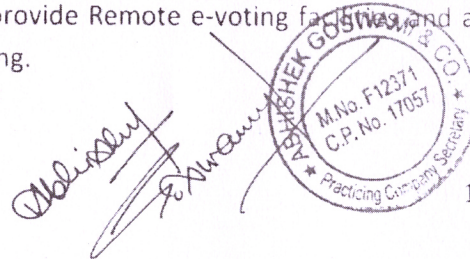 provide Remote e-voting facilities and a
ng.
ABHISHEK GOSWAMI & CO.
M.No. F12371
C.P. No. 17057
★ Practicing Company Secretary ★
1